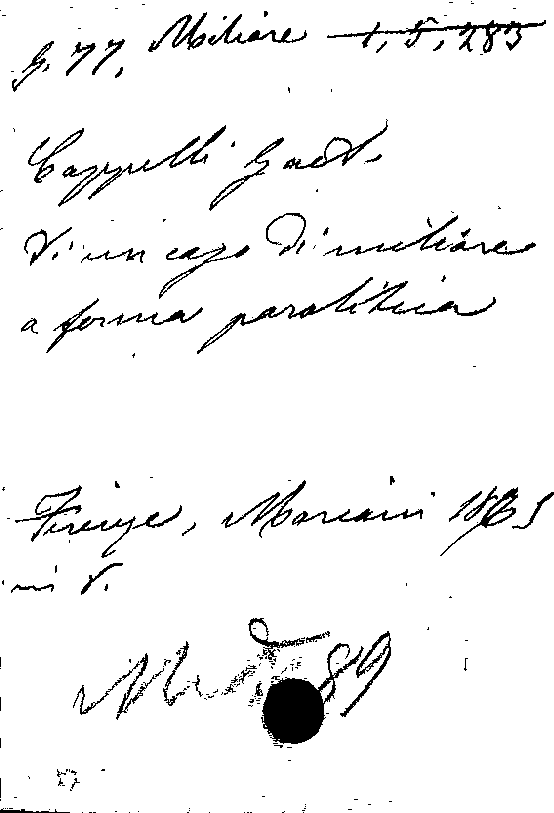 G. 77, Miliare 1, 5, 283
Cappelli Gaet.
Di un caso di miliare
a forma paralitica
Firenze, Mariani 1865
in 8.
89